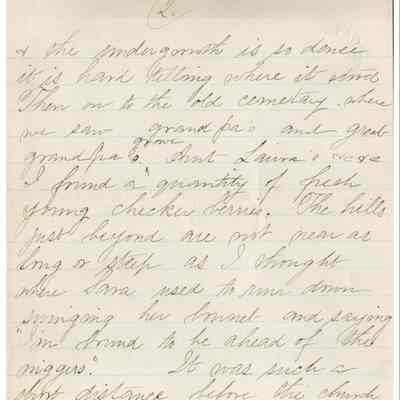 2.
& the undergrowth is so dence
it is hard telling where it stood
Then on to the old cemetary where
we saw grandpa's and great
grandpa's grave Aunt Laura's &c &c
I found a quantity of fresh
young checker berries. The hills
just beyond are not near as
long or steep as I thought
where Sara used to run down
swinging her bonnet and saying
"I'm bound to be ahead of the
niggers". It was such a
short distance before the church